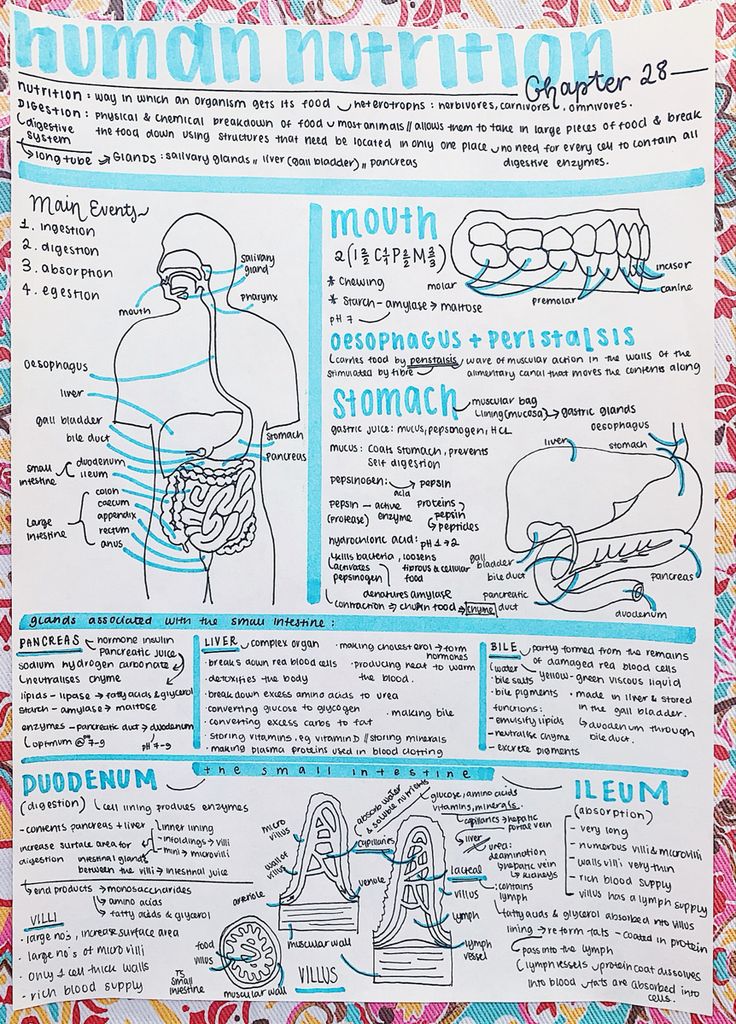 human nutrition
Chapter 28
nutrition: way in which an organism gets its food heterotrophs: herbivores, carnivores, omnivores.
DIGESTION: physical & chemical breakdown of food most animals // allows them to take in large pieces of food & break
the food down using structures that need be located in only one place no need for every cell to contain all
digestive enzymes.
digestive
system
→ long tube → GLANDS: salivary glands, liver (gall bladder) // pancreas
Main Events
1. ingestion
2. digestion
3. absorption
4. egestion
salivary
gland
pharynx
mouth
oesophagus
liver
gall bladder
bile duct
stomach
pancreas
small
intestine
duodenum
ileum
large
intestine
colon
caecum
appendix
rectum
anus
mouth
2(I 2/2 C 1/1 P 2/2 M 3/3)
* Chewing
* Starch - amylase → maltose
pH 7
molar
premolar
incisor
canine
oesophagus + peristalsis
carries food by peristalsis / wave of muscular action in the walls of the
stimulated by fibre alimentary canal that moves the contents along
stomach
muscular bag
lining (mucosa) → gastric glands
gastric juice: mucus, pepsonogen, HCL
mucus: coats stomach, prevents
self digestion
pepsinogen: → pepsin
acid
pepsin - active proteins →
(protease) enzyme pepsin
→ peptides
hydrochloric acid: pH 1→2
kills bacteria, loosens
activates fibrous & cellular
pepsinogen food
denatures amylase
contraction → churn food → chyme
oesophagus
liver
stomach
gall
bladder
bile duct
pancreatic
duct
pancreas
duodenum
glands associated with the small intestine:
PANCREAS hormone insulin
pancreatic juice
sodium hydrogen carbonate
neutralises chyme
lipids - lipase → fatty acids & glycerol
starch - amylase → maltose
enzymes - pancreatic duct → duodenum
optimum @ 7-9 pH 7-9
LIVER complex organ
· breaks down red blood cells
· detoxifies the body
· break down excess amino acids to urea
· converting glucose to glycogen
· converting excess carbs to fat
· storing vitamins. eg vitamin D // storing minerals
· making plasma proteins used in blood clotting
· making cholesterol → form
hormones
· producing heat to warm
the blood.
· making bile
BILE partly formed from the remains
of damaged red blood cells
water
· bile salts
· bile pigments
yellow-green viscous liquid
· made in liver & stored
in the gall bladder.
functions:
- emulsify lipids
- neutralise chyme
- excrete pigments
duodenum through
bile duct.
the small intestine
DUODENUM
(digestion) cell lining produces enzymes
- contents pancreas + liver
increase surface area for
digestion
inner lining
- infoldings → villi
- mini → microvilli
intestinal glands
between the villi → intestinal juice
→ end products → monosaccharides
→ amino acids
→ fatty acids & glycerol
VILLI
- large no's, increase surface area
- large no's of microvilli
- only 1 cell thick walls
- rich blood supply
micro
villus
wall of
villus
arteriole
venule
capillaries
absorb water
& soluble nutrients
muscular wall
food
villus
TS
small
intestine
muscular wall
VILLUS
glucose, amino acids
vitamins, minerals.
capillaries → hepatic
portal vein
→ liver
urea:
deamination
hepatic vein
→ kidneys
lacteal
contains
lymph
villus
lymph
lymph
vessel
fatty acids & glycerol absorbed into villus
lining → reform fats - coated in protein
pass into the lymph
lymph vessels protein coat dissolves
into blood fats are absorbed into
cells.
ILEUM
(absorption)
- very long
- numerous villi & microvilli
- walls villi very thin
- rich blood supply
- villus has a lymph supply